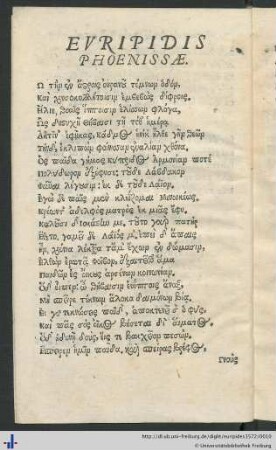 EVRIPIDIS
PHOENISSÆ.
Ω τὴν ἐν ἄστροις οὐρανοῦ τέμνων ὁδὸν,
Καὶ χρυσοκολλήτοισιν ἐμβεβὼς δίφροις,
Ηλιε, θοαῖς ἵπποισιν εἱλίσσων φλόγα,
Ως δυστυχῆ Θήβαισι τῇ τόθ' ἡμέρᾳ
Ακτῖν' ἐφῆκας, κάδμος ἡνίκ' ἦλθε γῆν
τήνδ', ἐκλιπὼν φοίνισσαν ἐναλίαν χθόνα,
Ος παῖδα γήμας κύπριδος Αρμονίαν ποτὲ
Πολύδωρον ἐξέφυσε· τοῦδε Λάβδακον
Φῦναι λέγουσιν· ἐκ δὲ τοῦδε Λάϊον.
Εγὼ δὲ παῖς μὲν κλῄζομαι Μενοικέως,
Κρέων τ' ἀδελφὸς μητρὸς ἐκ μιᾶς ἔφυ.
Καλοῦσι δ' ἰοκάστην με, τοῦτο γὰρ πατὴρ
Εθετο, γαμεῖ δὲ Λάϊός μ', ἐπεὶ δ' ἄπαις
ἦν χρόνια λέκτρα τἄμ' ἔχων ἐν δώμασιν,
Ελθὼν ἐρωτᾷ φοῖβον, ἐξαιτεῖ θ' ἅμα
Παίδων ἐς οἴκους ἀρσένων κοινωνίαν.
Ο δ' εἶπεν· ὦ Θήβαισιν εὐίπποις ἄναξ,
Μὴ σπεῖρε τέκνων ἄλοκα δαιμόνων βίᾳ.
Εἰ γὰρ τεκνώσεις παῖδ', ἀποκτενεῖ σ' ὁ φύς,
Καὶ πᾶς σὸς οἶκος βήσεται δι' αἵματος.
Ο δ' ἡδονῇ δοὺς, εἴς τε βακχεῖον πεσὼν,
Εσπειρεν ἡμῖν παῖδα, καὶ σπείρας βρέφος,
γνοὺς
http://dl.ub.uni-freiburg.de/diglit/euripides1572/0010
© Universitätsbibliothek Freiburg